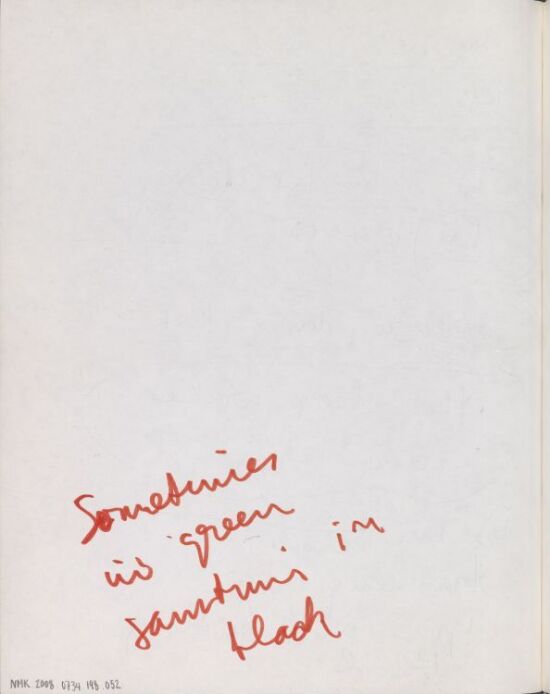 Sometimes
in green
sometimes in
black
NMK 2008 0734 198 052